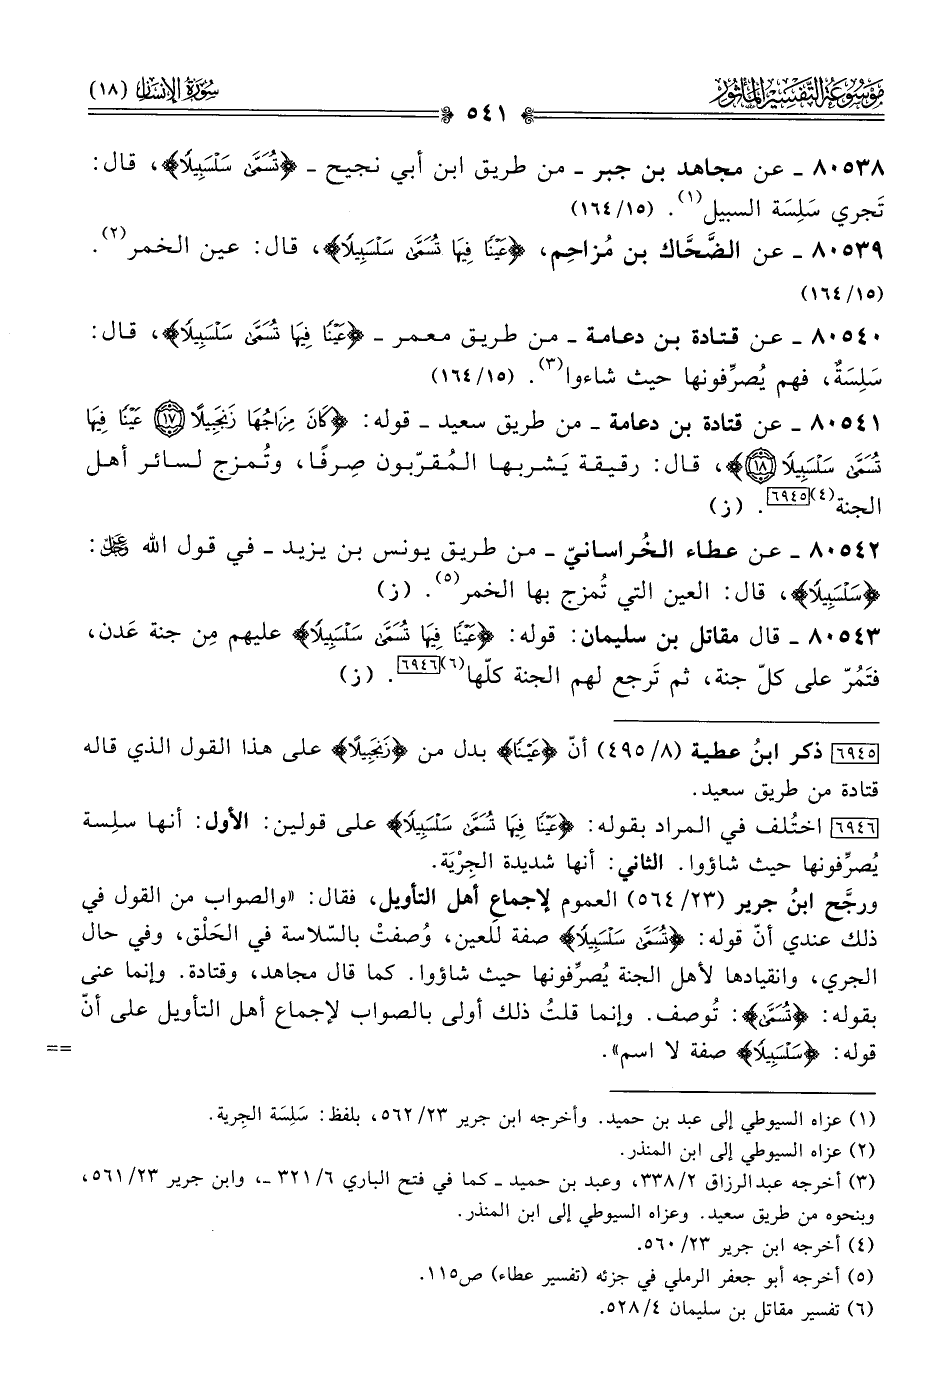 مَوْسُوعَةُ التَّفْسِيرِ المَأْثُورِ
سُورَةُ الإِنسَان (١٨)
٥٤١
٨٠٥٣٨ ـ عن مجاهد بن جبر ـ من طريق ابن أبي نجيح ـ ﴿تُسَمَّىٰ سَلْسَبِيلًا﴾، قال:
تَجري سَلِسَة السبيل(١). (١٦٤/١٥)
٨٠٥٣٩ ـ عن الضَّحَّاك بن مُزاحِم، ﴿عَيْنًا فِيهَا تُسَمَّىٰ سَلْسَبِيلًا﴾، قال: عين الخمر(٢).
(١٦٤/١٥)
٨٠٥٤٠ ـ عن قتادة بن دعامة ـ من طريق معمر ـ ﴿عَيْنًا فِيهَا تُسَمَّىٰ سَلْسَبِيلًا﴾، قال:
سَلِسَةٌ، فهم يُصرِّفونها حيث شاءوا(٣). (١٦٤/١٥)
٨٠٥٤١ ـ عن قتادة بن دعامة ـ من طريق سعيد ـ قوله: ﴿كَانَ مِزَاجُهَا زَنجَبِيلًا ١٧ عَيْنًا فِيهَا
تُسَمَّىٰ سَلْسَبِيلًا ١٨﴾، قال: رقيقة يَشربها المُقرّبون صِرفًا، وتُمزج لسائر أهل
الجنة(٤)٦٩٤٥. (ز)
٨٠٥٤٢ ـ عن عطاء الخُراسانيّ ـ من طريق يونس بن يزيد ـ في قول الله ﷿:
﴿سَلْسَبِيلًا﴾، قال: العين التي تُمزج بها الخمر(٥). (ز)
٨٠٥٤٣ ـ قال مقاتل بن سليمان: قوله: ﴿عَيْنًا فِيهَا تُسَمَّىٰ سَلْسَبِيلًا﴾ عليهم مِن جنة عَدن،
فتَمُرّ على كلّ جنة، ثم تَرجع لهم الجنة كلّها(٦)٦٩٤٦. (ز)
٦٩٤٥ ذكر ابنُ عطية (٨/ ٤٩٥) أنّ ﴿عَيْنًا﴾ بدل من ﴿زَنجَبِيلًا﴾ على هذا القول الذي قاله
قتادة من طريق سعيد.
٦٩٤٦ اختُلف في المراد بقوله: ﴿عَيْنًا فِيهَا تُسَمَّىٰ سَلْسَبِيلًا﴾ على قولين: الأول: أنها سلِسة
يُصرِّفونها حيث شاؤوا. الثاني: أنها شديدة الجِرْيَة.
ورجَّح ابنُ جرير (٢٣/ ٥٦٤) العموم لإجماعِ أهل التأويل، فقال: «والصواب من القول في
ذلك عندي أنّ قوله: ﴿تُسَمَّىٰ سَلْسَبِيلًا﴾ صفة للعين، وُصفتْ بالسّلاسة في الحَلْق، وفي حال
الجري، وانقيادها لأهل الجنة يُصرِّفونها حيث شاؤوا. كما قال مجاهد، وقتادة. وإنما عنى
بقوله: ﴿تُسَمَّىٰ﴾: تُوصف. وإنما قلتُ ذلك أولى بالصواب لإجماع أهل التأويل على أنّ
قوله: ﴿سَلْسَبِيلًا﴾ صفة لا اسم».
==
(١) عزاه السيوطي إلى عبد بن حميد. وأخرجه ابن جرير ٢٣/ ٥٦٢، بلفظ: سَلِسَة الجِرية.
(٢) عزاه السيوطي إلى ابن المنذر.
(٣) أخرجه عبدالرزاق ٢/ ٣٣٨، وعبد بن حميد ـ كما في فتح الباري ٦/ ٣٢١ ـ، وابن جرير ٢٣/ ٥٦١،
وبنحوه من طريق سعيد. وعزاه السيوطي إلى ابن المنذر.
(٤) أخرجه ابن جرير ٢٣/ ٥٦٠.
(٥) أخرجه أبو جعفر الرملي في جزئه (تفسير عطاء) ص١١٥.
(٦) تفسير مقاتل بن سليمان ٤/ ٥٢٨.